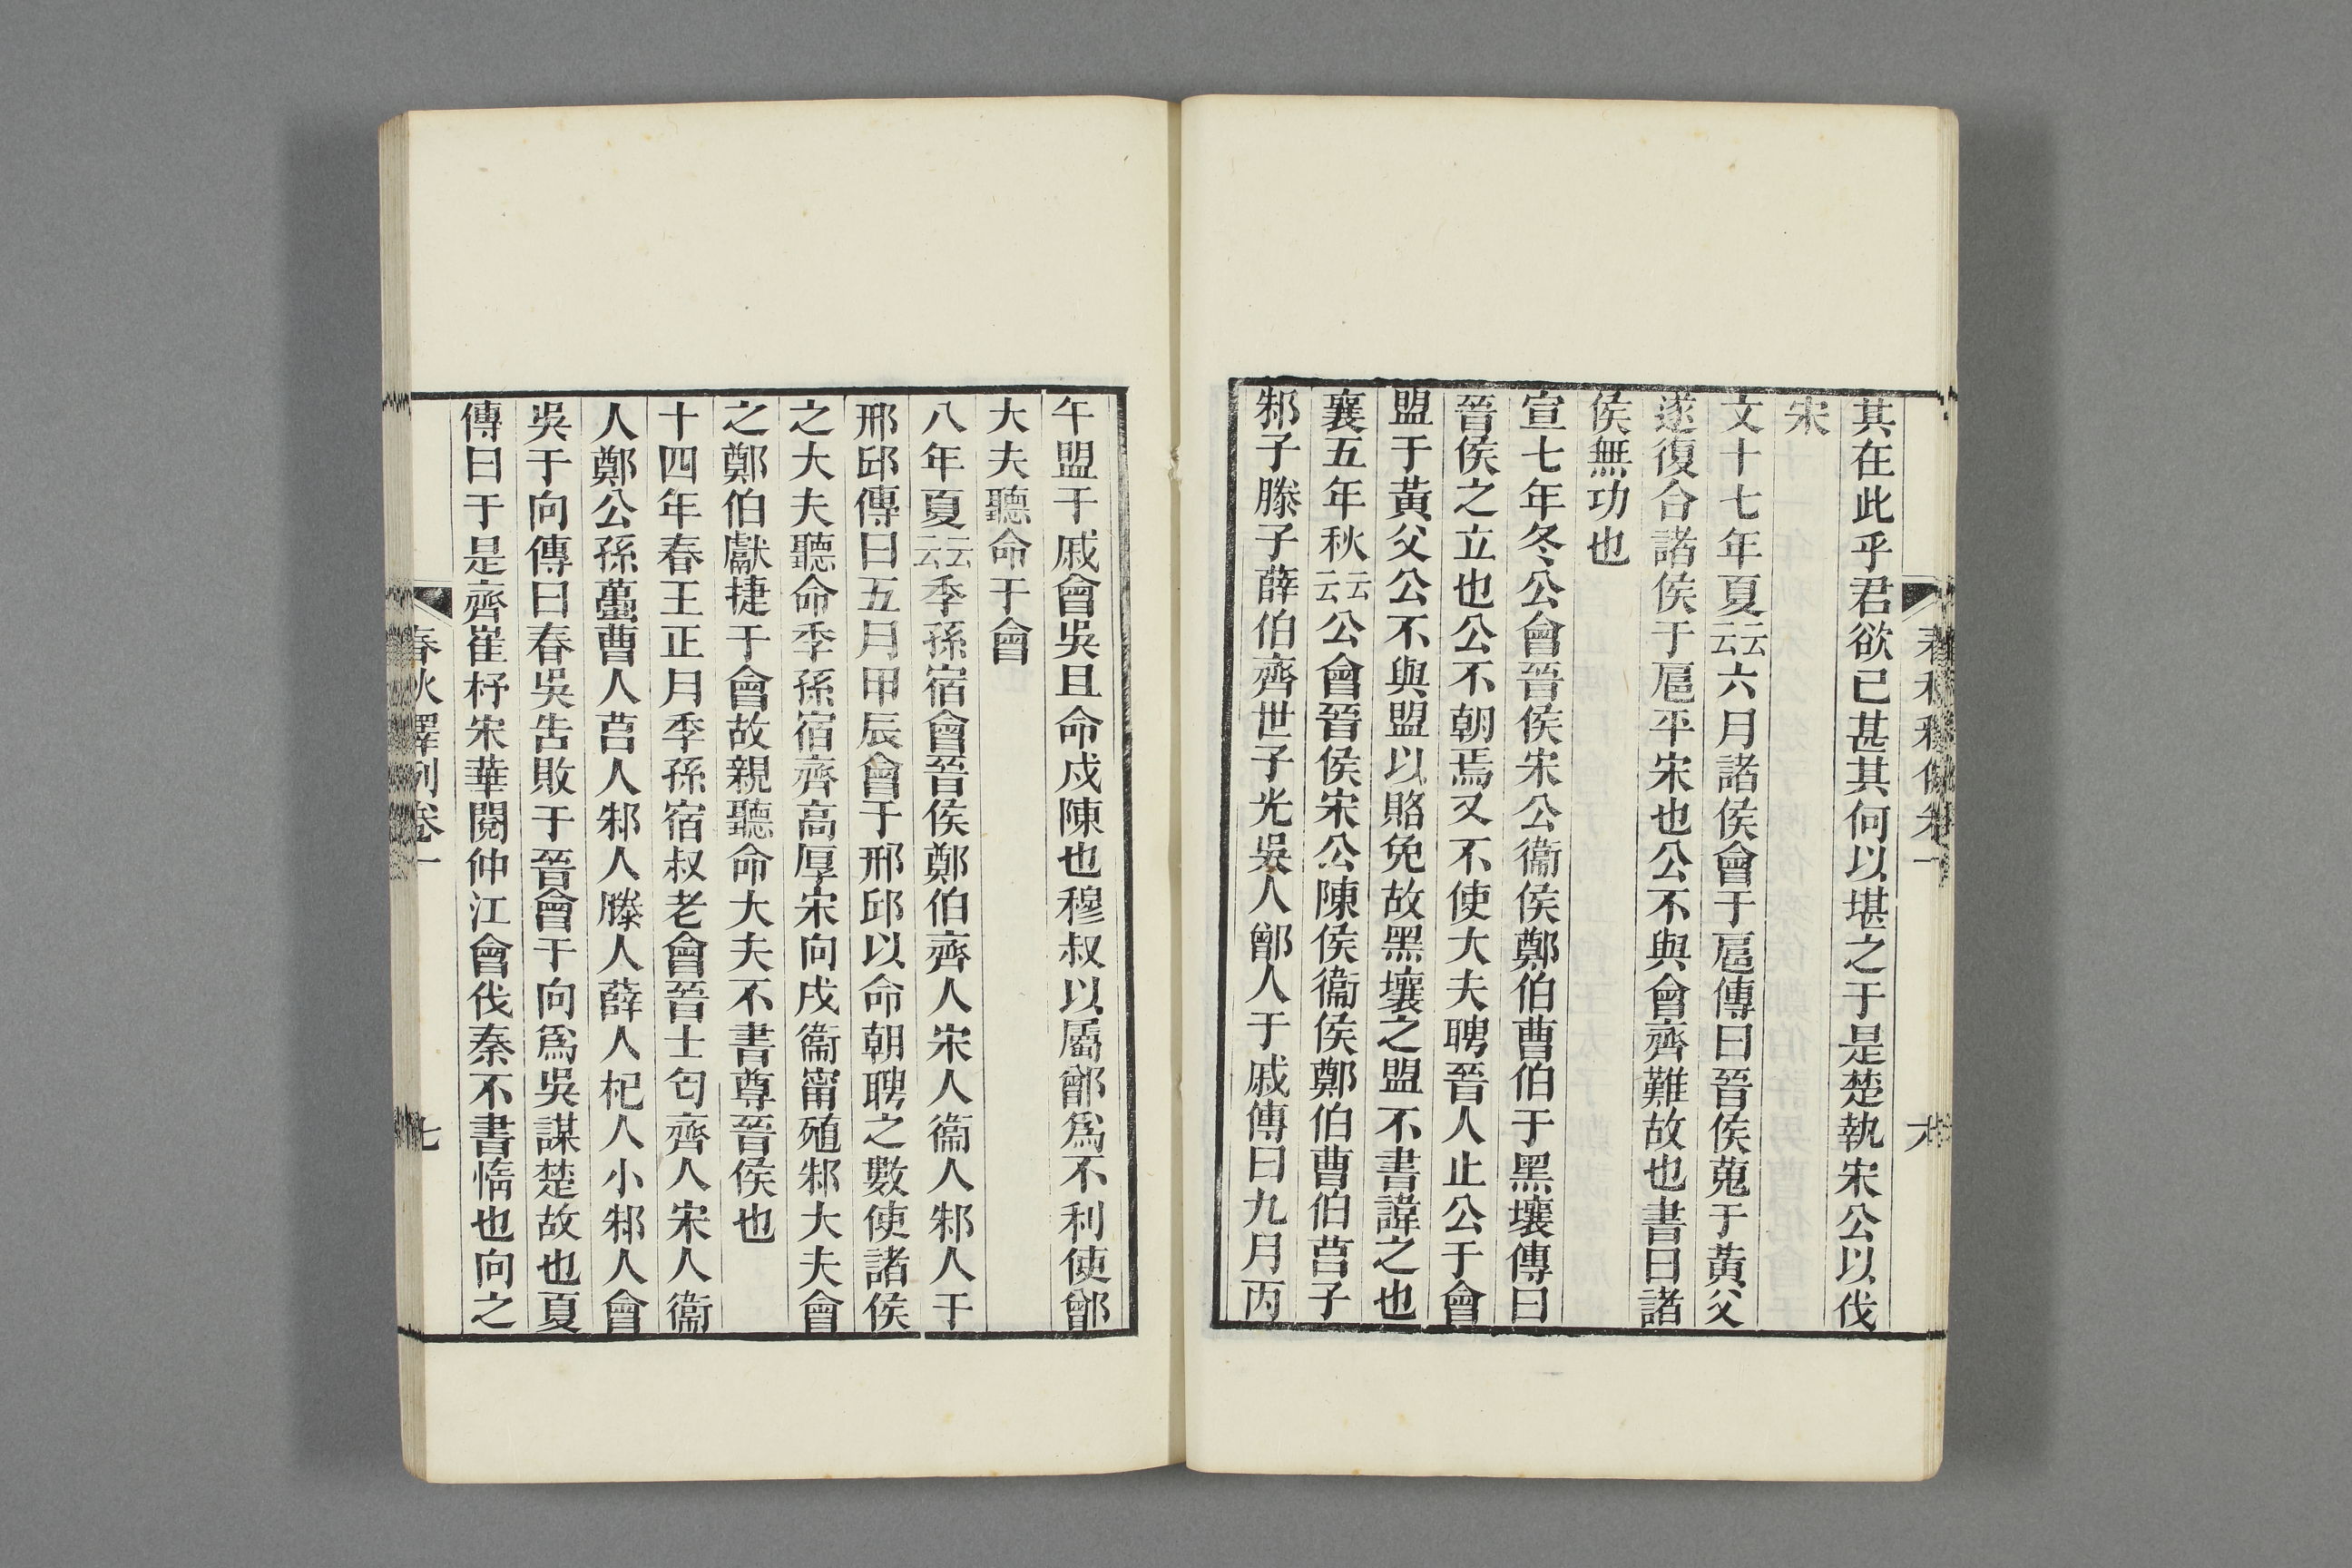 其在此乎君欲已甚其何以堪之于是楚執宋公以伐
宋
文十七年夏云云六月諸侯會于扈傳曰晉侯蒐于黃父
遂復合諸侯于扈平宋也公不與會齊難故也書曰諸
侯無功也
宣七年冬公會晉侯宋公衞侯鄭伯曹伯于黑壤傳曰
晉侯之立也公不朝焉又不使大夫聘晉人止公于會
盟于黃父公不與盟以賂免故黑壤之盟不書諱之也
襄五年秋云云公會晉侯宋公陳侯衞侯鄭伯曹伯莒子
邾子滕子薛伯齊世子光吳人鄫人于戚傳曰九月丙
午盟于戚會吳且命戍陳也穆叔以屬鄫爲不利使鄫
大夫聽命于會
八年夏云云季孫宿會晉侯鄭伯齊人宋人衞人邾人于
邢邱傳曰五月甲辰會于邢邱以命朝聘之數使諸侯
之大夫聽命季孫宿齊高厚宋向戌衞甯殖邾大夫會
之鄭伯獻捷于會故親聽命大夫不書尊晉侯也
十四年春王正月季孫宿叔老會晉士匄齊人宋人衞
人鄭公孫蠆曹人莒人邾人滕人薛人杞人小邾人會
吳于向傳曰春吳告敗于晉會于向爲吳謀楚故也夏
傳曰于是齊崔杼宋華閱仲江會伐秦不書惰也向之
春秋釋例卷一
七